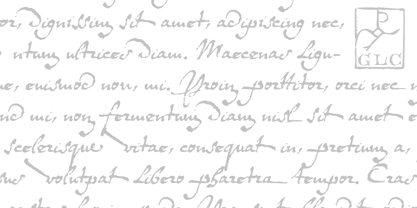 or, dignissim sit amet, adipiscing nec,
ntum ultrices diam. Maecenas ligu-
P
GLC
e, euismod non, mi. Proin porttitor, orci nec n
mi, non fermentum diam nisl sit amet e
scelerisque vitae, consequat in, pretium a,
volutpat libero pharetra tempor. Cras